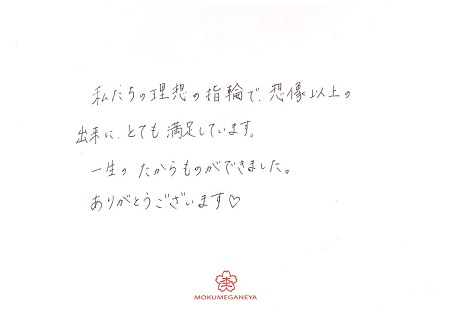 私たちの理想の指輪で、想像以上の
出来に、とても満足しています。
一生の たからものができました。
ありがとうございます♡
MOKUMEGANEYA